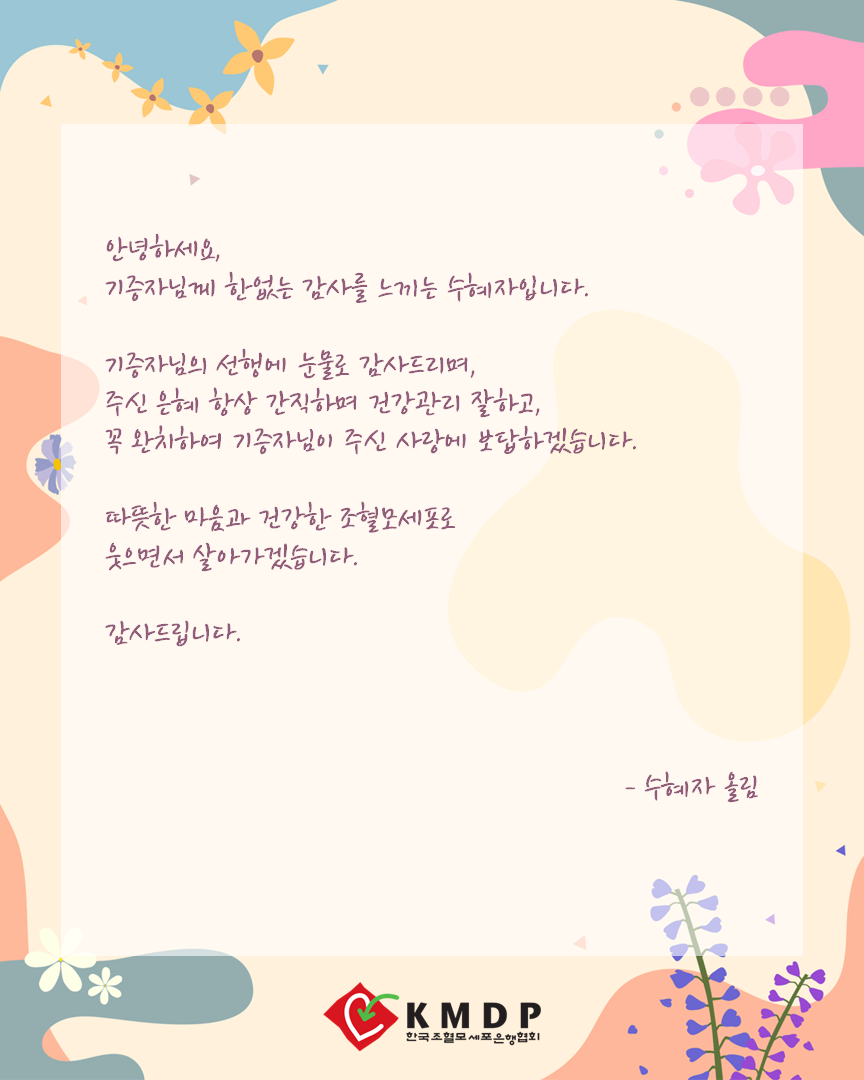 안녕하세요,
기증자님께 한없는 감사를 느끼는 수혜자입니다.
기증자님의 선행에 눈물로 감사드리며,
주신 은혜 항상 간직하며 건강관리 잘하고,
꼭 완치하여 기증자님이 주신 사랑에 보답하겠습니다.
따뜻한 마음과 건강한 조혈모세포로
웃으면서 살아가겠습니다.
감사드립니다.
- 수혜자 올림
KMDP
한국조혈모세포은행협회